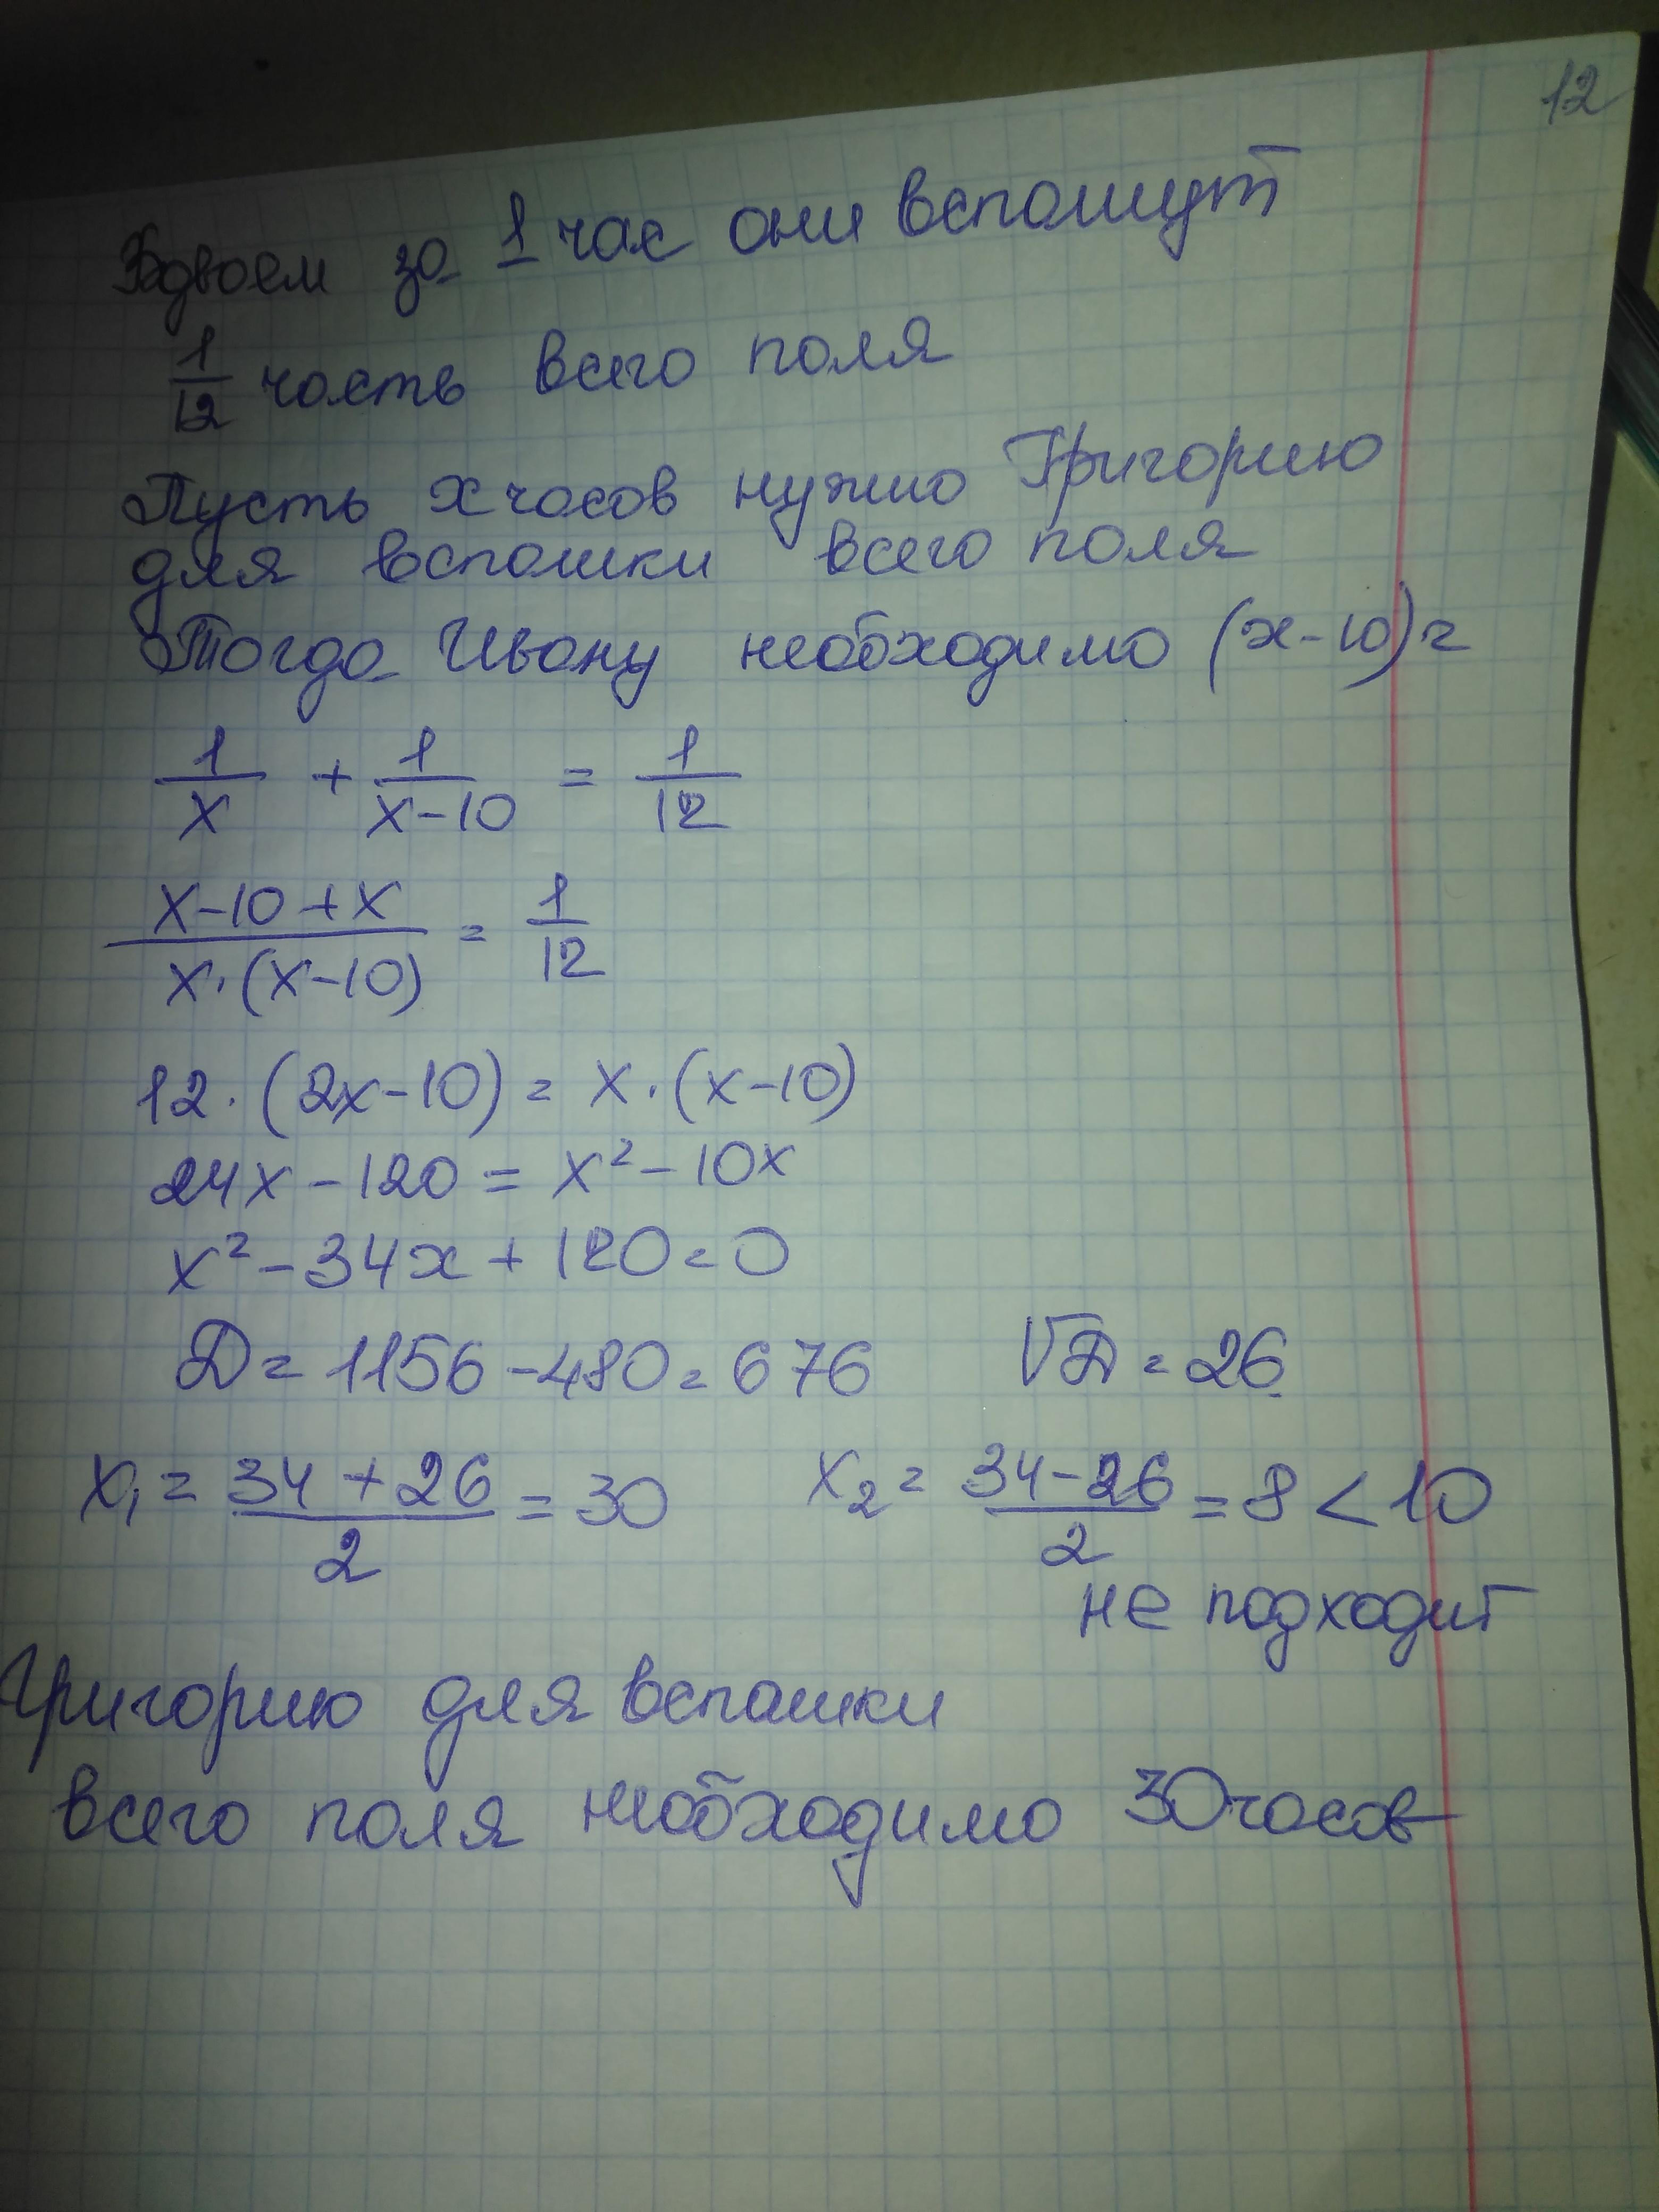 12
Вдвоем за 1 час они вспашут
1/12 часть всего поля
Пусть x часов нужно Григорию
для вспашки всего поля
Тогда Ивану необходимо (x-10)ч
1/x + 1/(x-10) = 1/12
(x-10+x)/(x·(x-10)) = 1/12
12·(2x-10) = x·(x-10)
24x-120 = x²-10x
x²-34x+120=0
D=1156-480=676 √D=26
x₁ = (34+26)/2 = 30 x₂ = (34-26)/2 = 8 < 10
не подходит
Григорию для вспашки
всего поля необходимо 30 часов